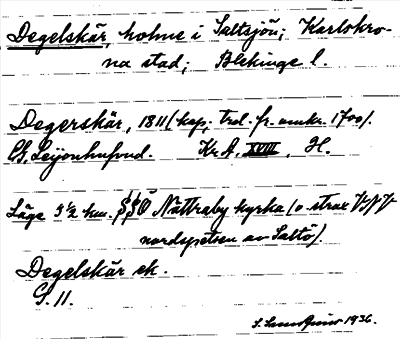 Degelskär, holme i Saltsjön; Karlskro-
na stad; Blekinge l.
Degerskär, 1811 (kop; trol. fr. omkr. 1700).
CG. Leijonhufvud. Kr.A. XVIII. H.
Läge 3½ km. SSÖ Nättraby kyrka (o. strax NNV
nordspetsen av Saltö).
Degelskär ek.
G. 11.
1936.